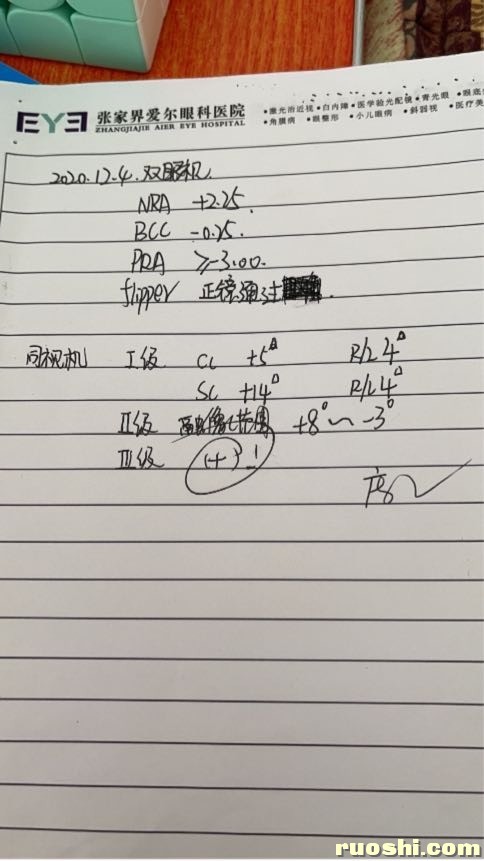 EYE 张家界爱尔眼科医院
ZHANGJIAJIE AIER EYE HOSPITAL
•激光治近视•白内障•医学验光配镜•青光眼•眼底
•角膜病 •眼整形 •小儿眼病 •斜弱视 •医疗美
2020.12.4.双眼视机
NRA +2.25.
BCC -0.25.
PRA ≥-3.00.
flipper 正镜通过
同视机 I级 CC +5△ R/L 4△
SC +14△ R/L 4△
II级 范围 +8°~-3°
III级 (+)!
ruoshi.com